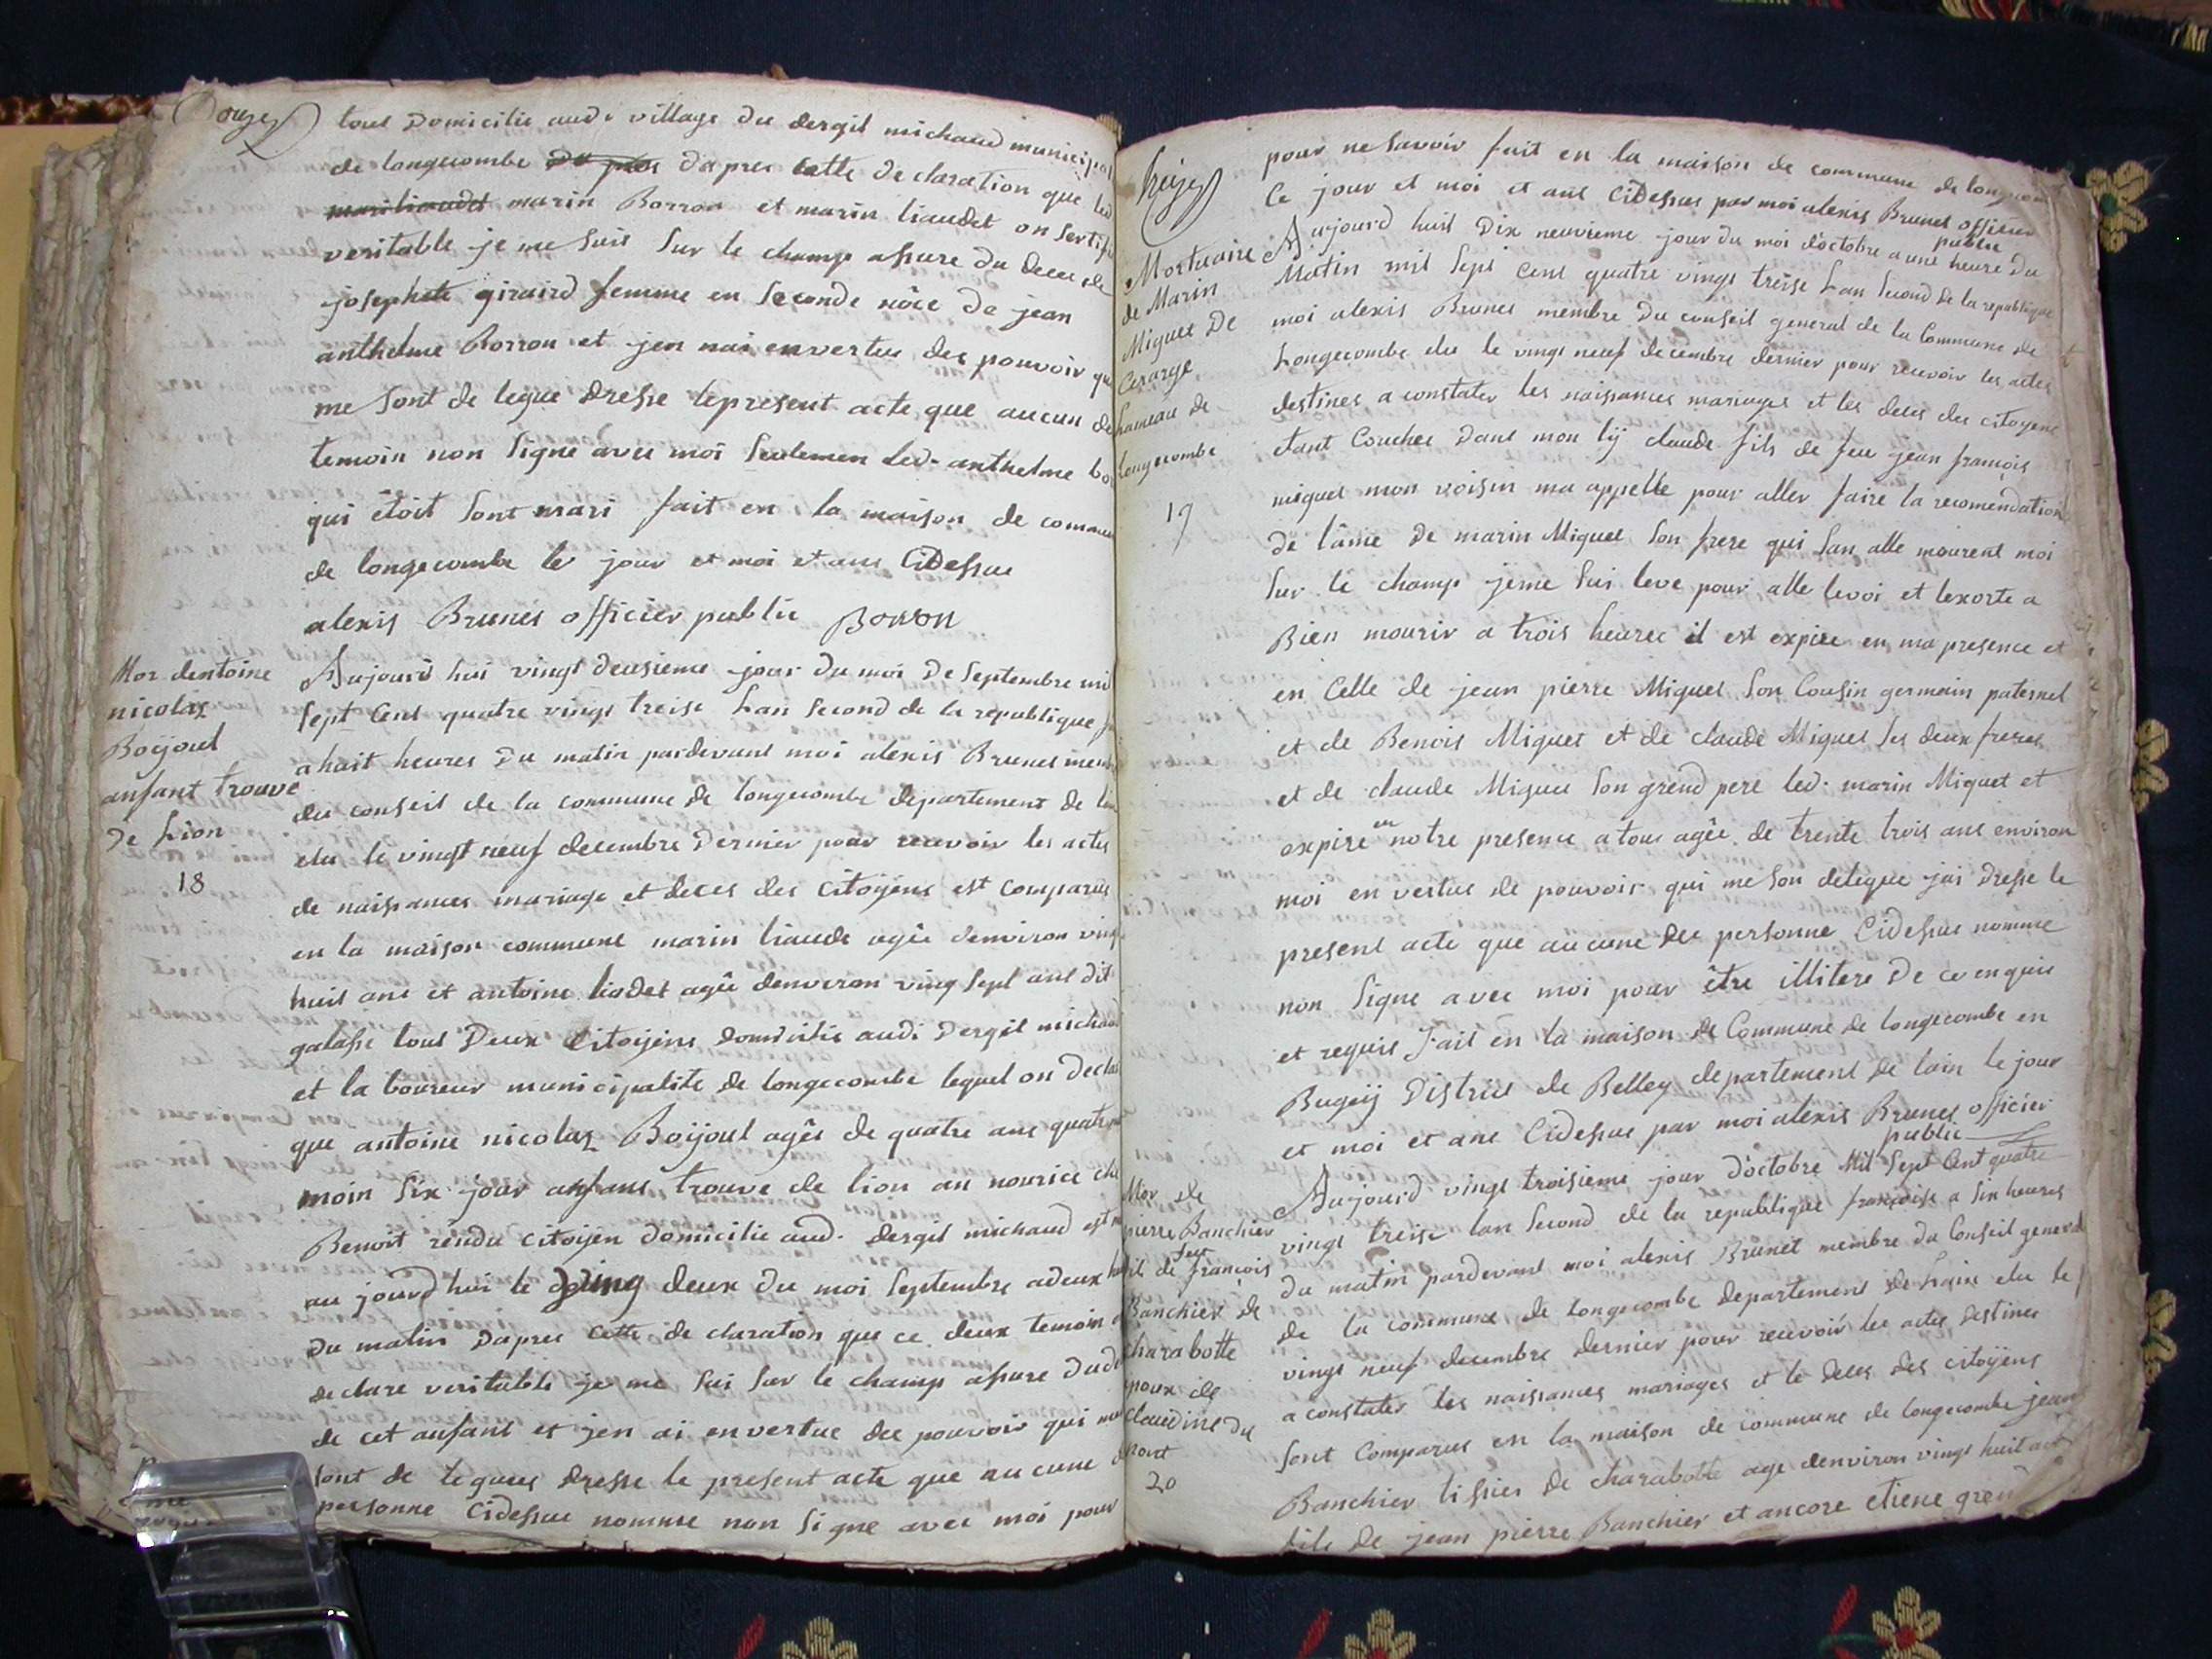 Douze
tous Domicilie audi village du dergil michaud municipal
de longecombe du pres dapres cette declaration que led
marin Borron et marin liaudet on sertifi
veritable je me suis sur le champ assure du deces de
josephete giraird femme en seconde nôce de jean
anthelme Borron et jen nai envertu des pouvoir qui
me sont de legue dresse lepresent acte que aucun de
temoin non signe avec moi seulemen led. anthelme bo
qui êtoit sont mari fait en la maison de commu
de longecombe le jour et moi et ans Cidessus
alexis Brunes officier public Borron
Mor dentoine
nicolas
Boijoul
anfant trouve
De Lion
18
Aujourd hui vingt deusieme jour du moi de septembre mil
sept Cens quatre vings treise Lan second de la republique
a huit heures du matin pardevant moi alexis Brunes mem
du conseil de la commune de longecombe departement de
elu le vingt neuf decembre dernier pour recevoir les actes
de naissances mariage et deces des Citoÿens est comparus
en la maison commune marin liaude agée denviron ving
huit ans et antoine liodet agée denveron ving sept ans dit
galasse tous Deux Citoijens domicilie audi Dergil michau
et la boureur municipalite de longecombe lequel on decla
que antoine nicolas Boijoul agês de quatre ans quatre
moin six jour anfans trouve de lion an nourice che
Benoit rendu citoijen domicilie aud. dergil michaud est
au jourd hui le ving deux du moi Septembre adeux
Du matin Dapres cette de claration que ce deux temoin
declare veritable je me sui sur le champ assure dud
de cet anfant et jen ai envertue des pouvoir qui me
sont de legues dresse le present acte que aucune
personne Cidessus nomme non signe avec moi pour
treize
pour ne savoir fait en la maison de commune de longecom
le jour et moi et ans Cidessus par moi alexis Brunes officier
public
Mortuaire
de Marin
Miguet De
Cerarge
hameau de
longecombe
19
Aujourd huit Dix neuvieme jour du moi d'octobre a une heure du
Matin mil sept Cens quatre vings treise Lan second de la republique
moi alexis Brunes membre du conseil general de la Commune de
Longecombe elu le vingt neuf decembre dernier pour recevoir les actes
destines a constater les naissances mariages et les deces des citoyens
etant Couches dans mon lij claude fils de feu jean françois
miguet mon voisin ma appelle pour aller faire la recomendation
de l'âme de marin Miguet son frere qui san alle mourent moi
sur le champ jeme sui leve pour alle levoi et lexorte a
Bien mourir a trois heures il est expire en ma presence et
en Celle de jean pierre Miguet son Cousin germain paternel
et de Benois Miguet et de claude Miguet ses deux freres
et de claude Miguet son grend pere led. marin Miguet et
expire en notre presence a tous agée de trente trois ans environ
moi en vertus de pouvoir qui me son delegue jai dresse le
present acte que aucune des personne Cidessus nomme
non signe avec moi pour être illitere de ce enquis
et requis Fait en la maison de Commune de longecombe en
Bugeij District de Belley departement de lain le jour
et moi et ans Cidessus par moi alexis Brunes officier
public
Mor de
pierre Banchier
fils de feu françois
Banchier de
charabotte
epoux de
Claudine du
pont
20
Aujourd vingt troisieme jour d'octobre Mil Sept Cent quatre
vings treise lan second de la republique françoise a six heures
du matin pardevant moi alexis Brunet membre du Conseil general
de la commune de longecombe departement de Lain elu le
vingt neuf decembre dernier pour recevoir les actes destines
a constater les naissances mariages et le deces des citoÿens
sont Comparus en la maison de commune de longecombe jean
Banchier tissier de charabotte age denviron vingt huit ans
fils de jean pierre Banchier et ancore etiene